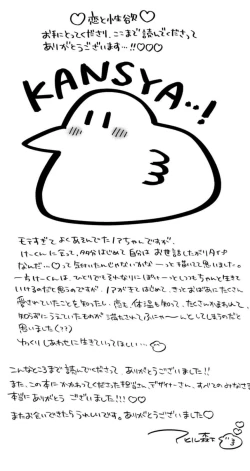 ♡恋と性欲♡
お手にとってくださり、ここまで読んでくださって
ありがとうございます…!!♡♡♡
KANSYA..!
モテすぎて よくあそんでたノアちゃんですが、
けーくんに会って、多分はじめて 自分は お世話したがりタイプ
なんだ…♡って気付いたんじゃないかなーっと描いてて思いました。
一方けーくんは、ひとりでもそれなりにぽけーっといつもちゃんと生きて
いけるのだと思うのですが、ノアがきてはじめて、きっとおばあにたくさん
愛されていたことを知ったし、恋も、体温も知って、たくさんかまわれて、
知らずにうえていたものが 満たされてふにゃ〜んとしてしまうのだと
思いました(??)
ゆっくりしあわせに生きていってほしい…
こんなところまで読んでくださって、ありがとうございました!!
また、この本に かかわってくださった担当さん、デザイナーさん、すべてのみなさま
本当にありがとう ございました!!!♡♡
またお会いできたら うれしいです。ありがとうございました♡